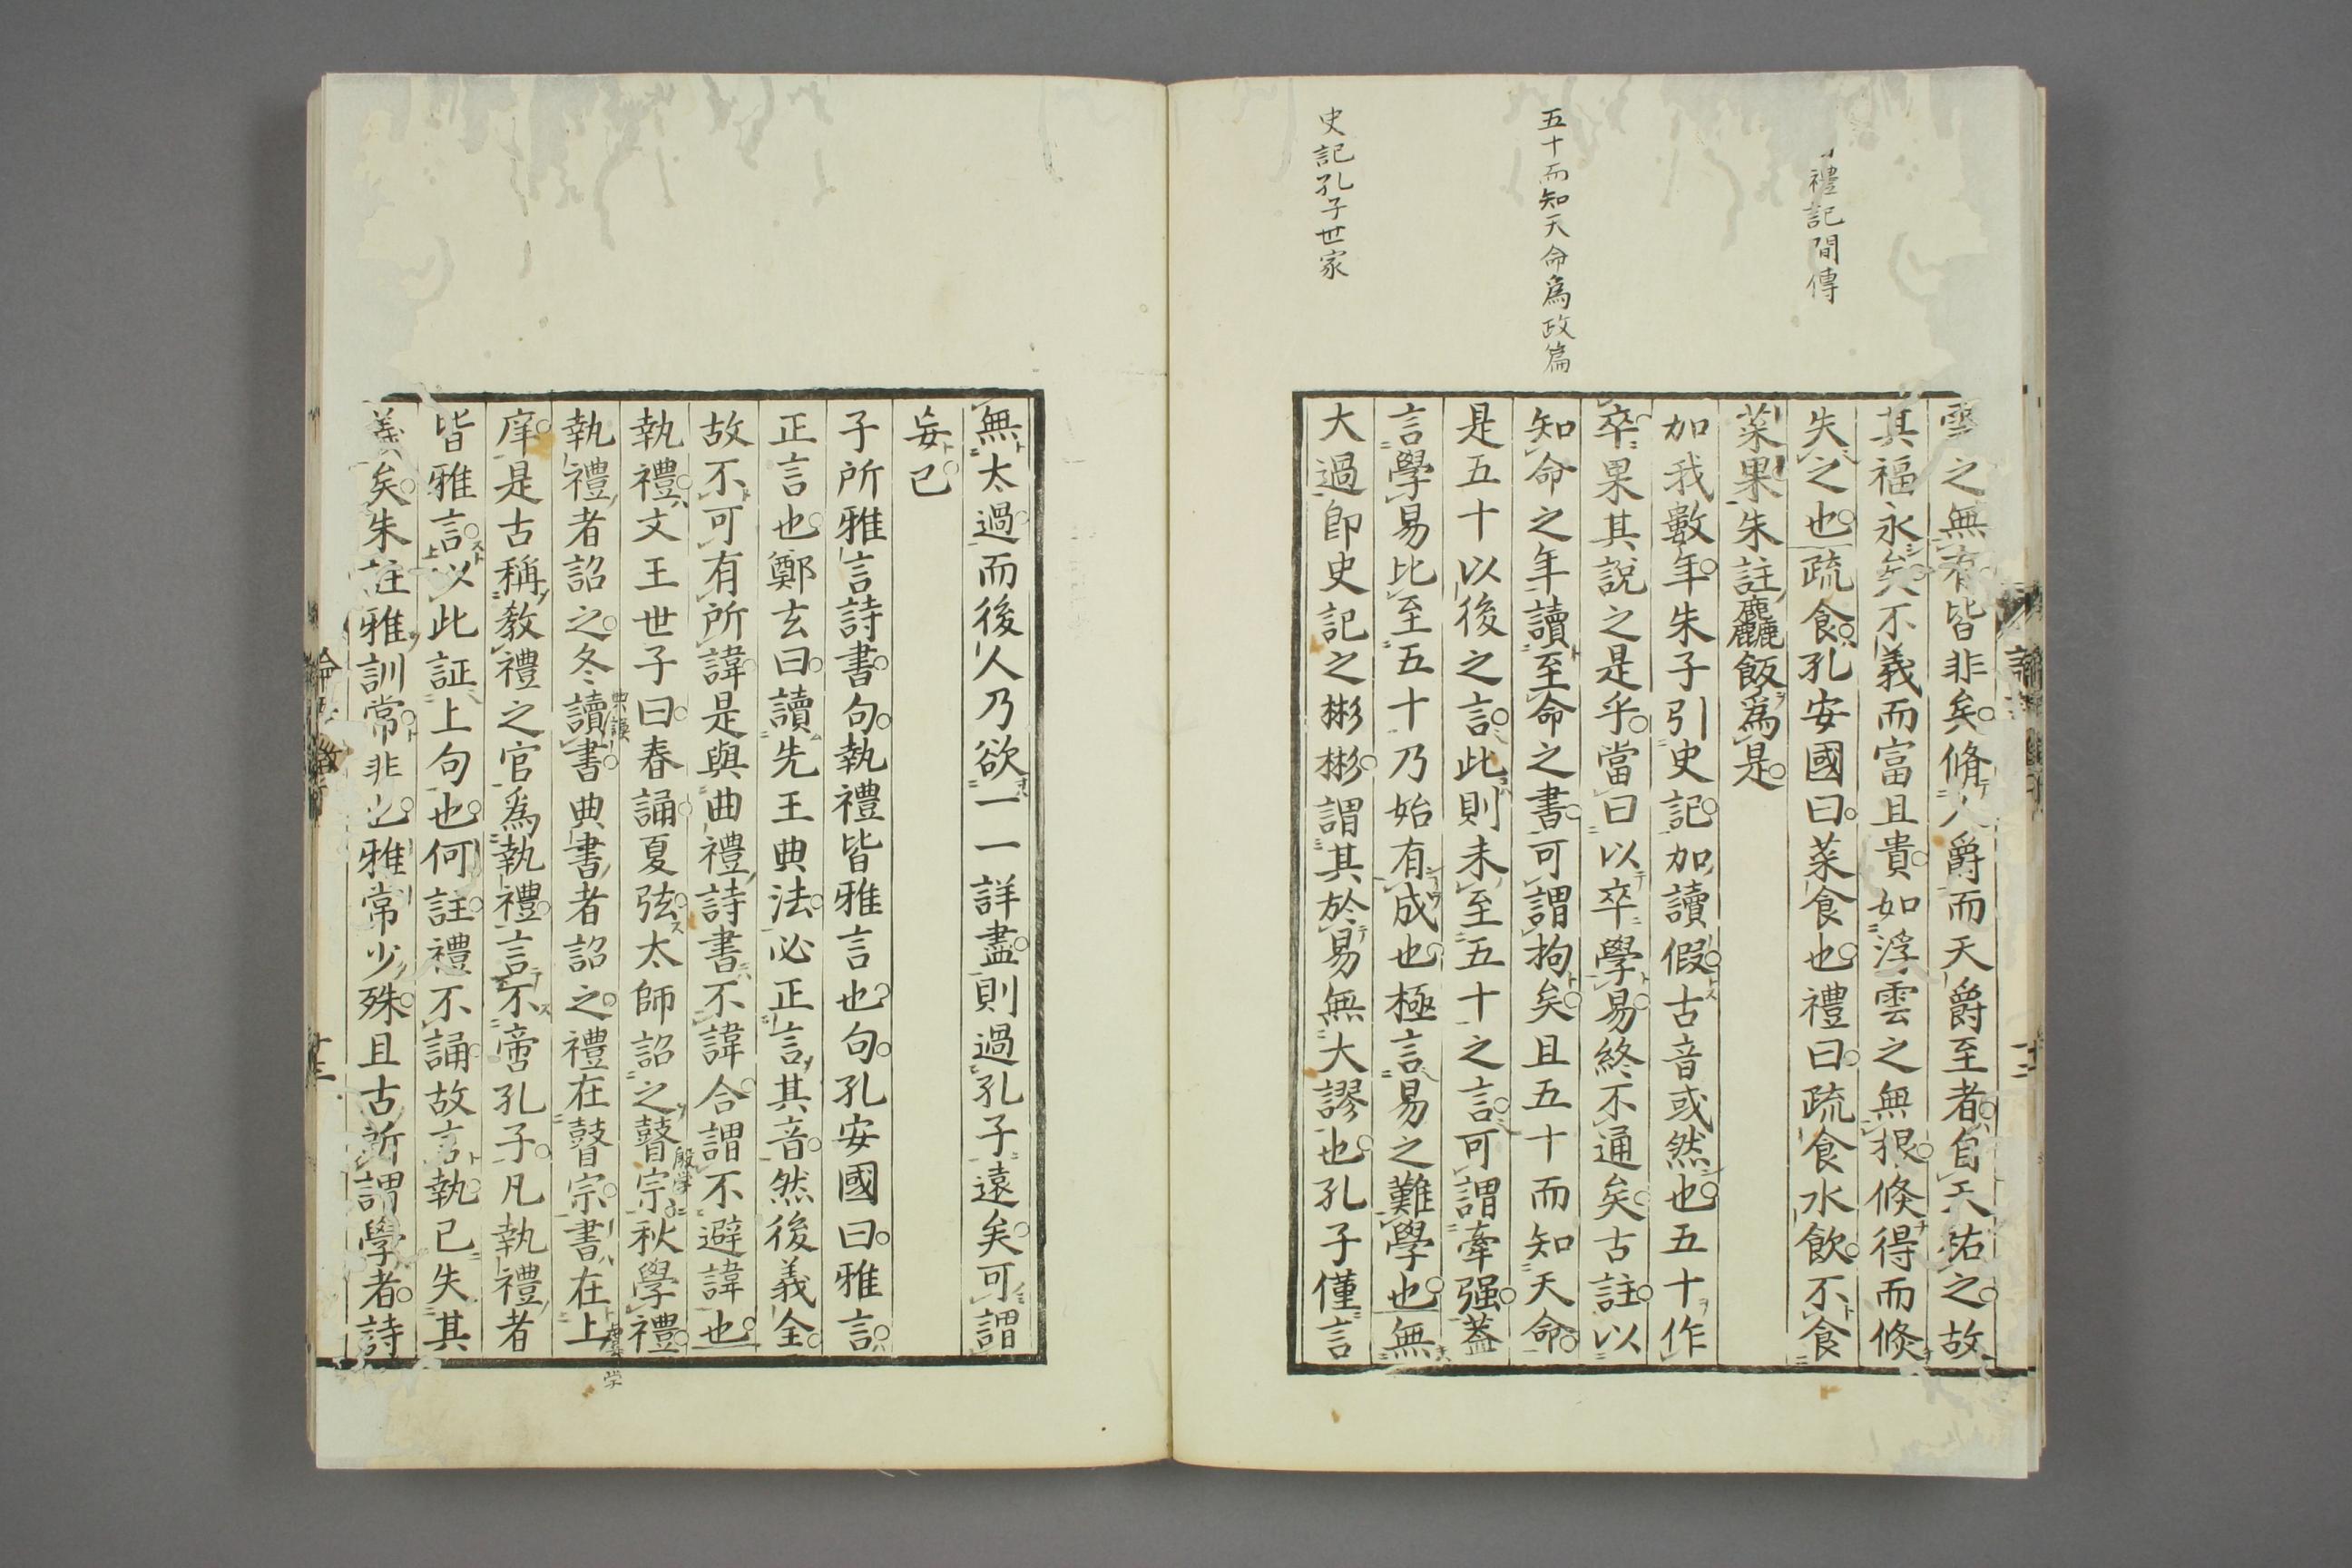 禮記間傳
五十而知天命爲政篇
史記孔子世家
雲之無有皆非矣脩人爵而天爵至者自天祐之故
其福永矣不義而富且貴如浮雲之無根倏得而倏
失之也疏食孔安國曰菜食也禮曰疏食水飲不食
菜果朱註麤飯爲是
加我數年朱子引史記加讀假古音或然也五十作
卒果其說之是乎當曰以卒學易終不通矣古註以
知命之年讀至命之書可謂拘矣且五十而知天命
是五十以後之言此則未至五十之言可謂牽强蓋
言學易比至五十乃始有成也極言易之難學也無
大過卽史記之彬彬謂其於易無大謬也孔子僅言
無太過而後人乃欲一一詳盡則過孔子遠矣可謂
妄已
子所雅言詩書句執禮皆雅言也句孔安國曰雅言
正言也鄭玄曰讀先王典法必正言其音然後義全
故不可有所諱是與曲禮詩書不諱合謂不避諱也
執禮文王世子曰春誦夏弦太師詔之瞽宗秋學禮
殷学
執禮者詔之冬讀書典書者詔之禮在瞽宗書在上
虞学
庠是古稱教禮之官爲執禮言不啻孔子凡執禮者
皆雅言以此証上句也何註禮不誦故言執已失其
義矣朱註雅訓常非也雅常少殊且古所謂學者詩